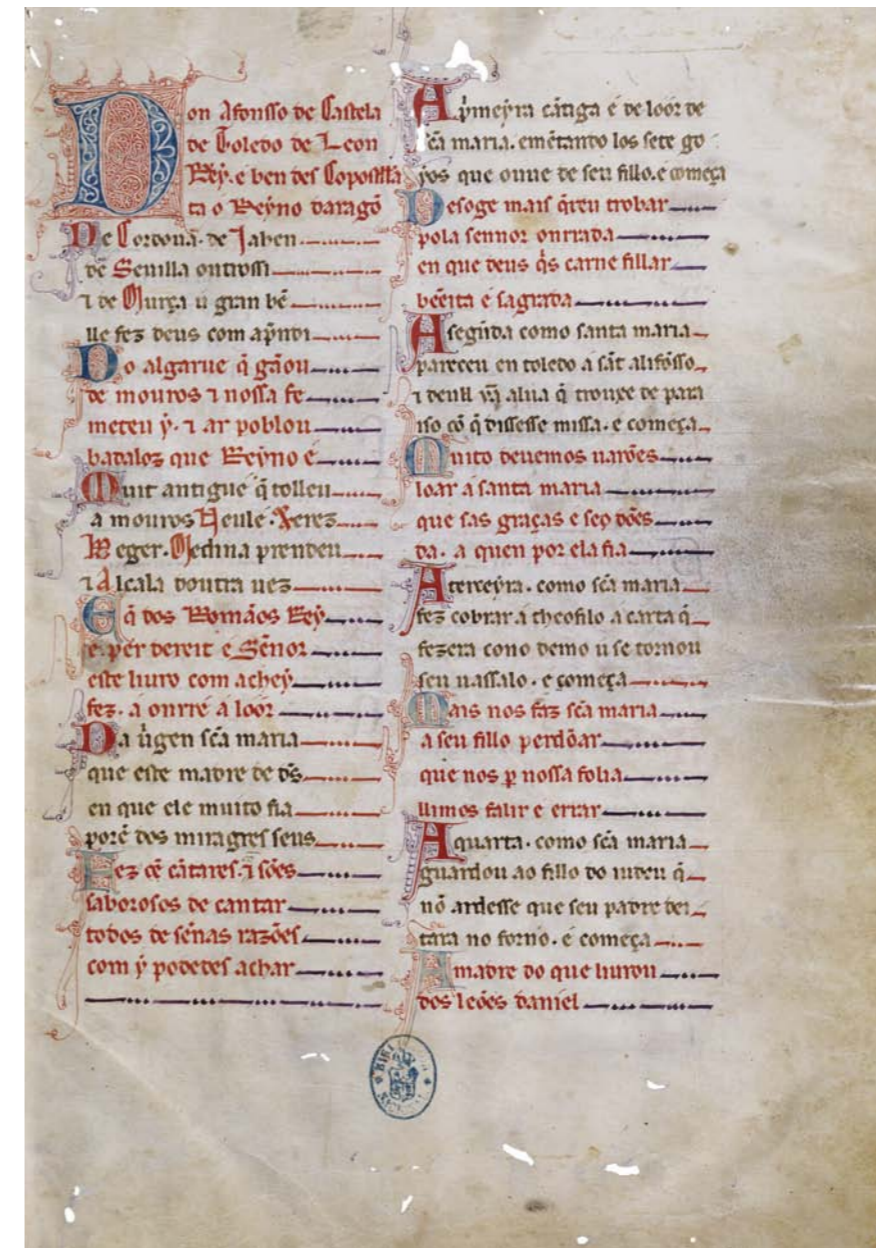 Don Afonsso de Castela
de Toledo de Leon
Rey. e ben des Cõpostella
ta o Reyno daragõ
De Cordoua. de Jahen
de Seuilla outrossi
⁊ de Murça u gran bẽ
lle fez deus com apndi
Do algarue q̃ gãou
de mouros ⁊ nossa fe
meteu y. ⁊ ar poblou
badaloz que Reyno é
Muit antigue q̃ tolleu
a mouros Neule. Xerez
Beger. Medina prendeu
⁊ Alcala doutra uez
E q̃ dos Romãos Rey
é. per dereit e Sẽnor
este liuro com achey
fez. á onrré á loór
Da uirgen sc̃a maria
que este madre de d̃s
en que ele muito fia
porẽ dos miragres seus
Fez cẽ cãtares. ⁊ sões
saborosos de cantar
todos de sẽnas razões
com y podedes achar
A pmeyra cãtiga é de loór de
sc̃a maria. emẽtando los sete go
yos que ouue de seu fillo. e começa
Des oge mais q̃reu trobar
pola sennor onrrada
en que deus q̃s carne fillar
bẽeita e sagrada
A segũda como santa maria
pareceu en toledo a sãt alifõsso
⁊ deull hũa alua q̃ trouxe de para
iso cõ q̃ dissesse missa. e começa
Muito deuemos uarões
loar a santa maria
que sas graças e seos dões
da. a quen por ela fia
A terceyra. como sc̃a maria
fez cobrar a theofilo a carta q̃
fezera cono demo u se tornou
seu uassalo. e começa
Mais nos faz sc̃a maria
a seu fillo perdõar
que nos p nossa folia
llimos falir e errar
A quarta. como sc̃a maria
guardou ao fillo do iudeu q̃
nõ ardesse que seu padre dei
tara no forno. e começa
A madre do que liurou
dos leões daniel